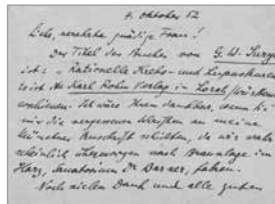 4. Oktober 52
Liebe, verehrte gnädige Frau!
Der Titel des Buches von G. W. Surya
ist: „Rationelle Krebs- und Lupuskuren
es ist im Karl Rohm Verlag in Lorch/Württem
erschienen. Ich wäre Ihnen dankbar, wenn Sie
mir die vergessenen Schriften an meine
Münchner Anschrift schickten, da wir wahr
scheinlich übermorgen nach Braunlage im
Harz, Sanatorium Dr. Barner, fahren.
Noch vielen Dank und alle guten